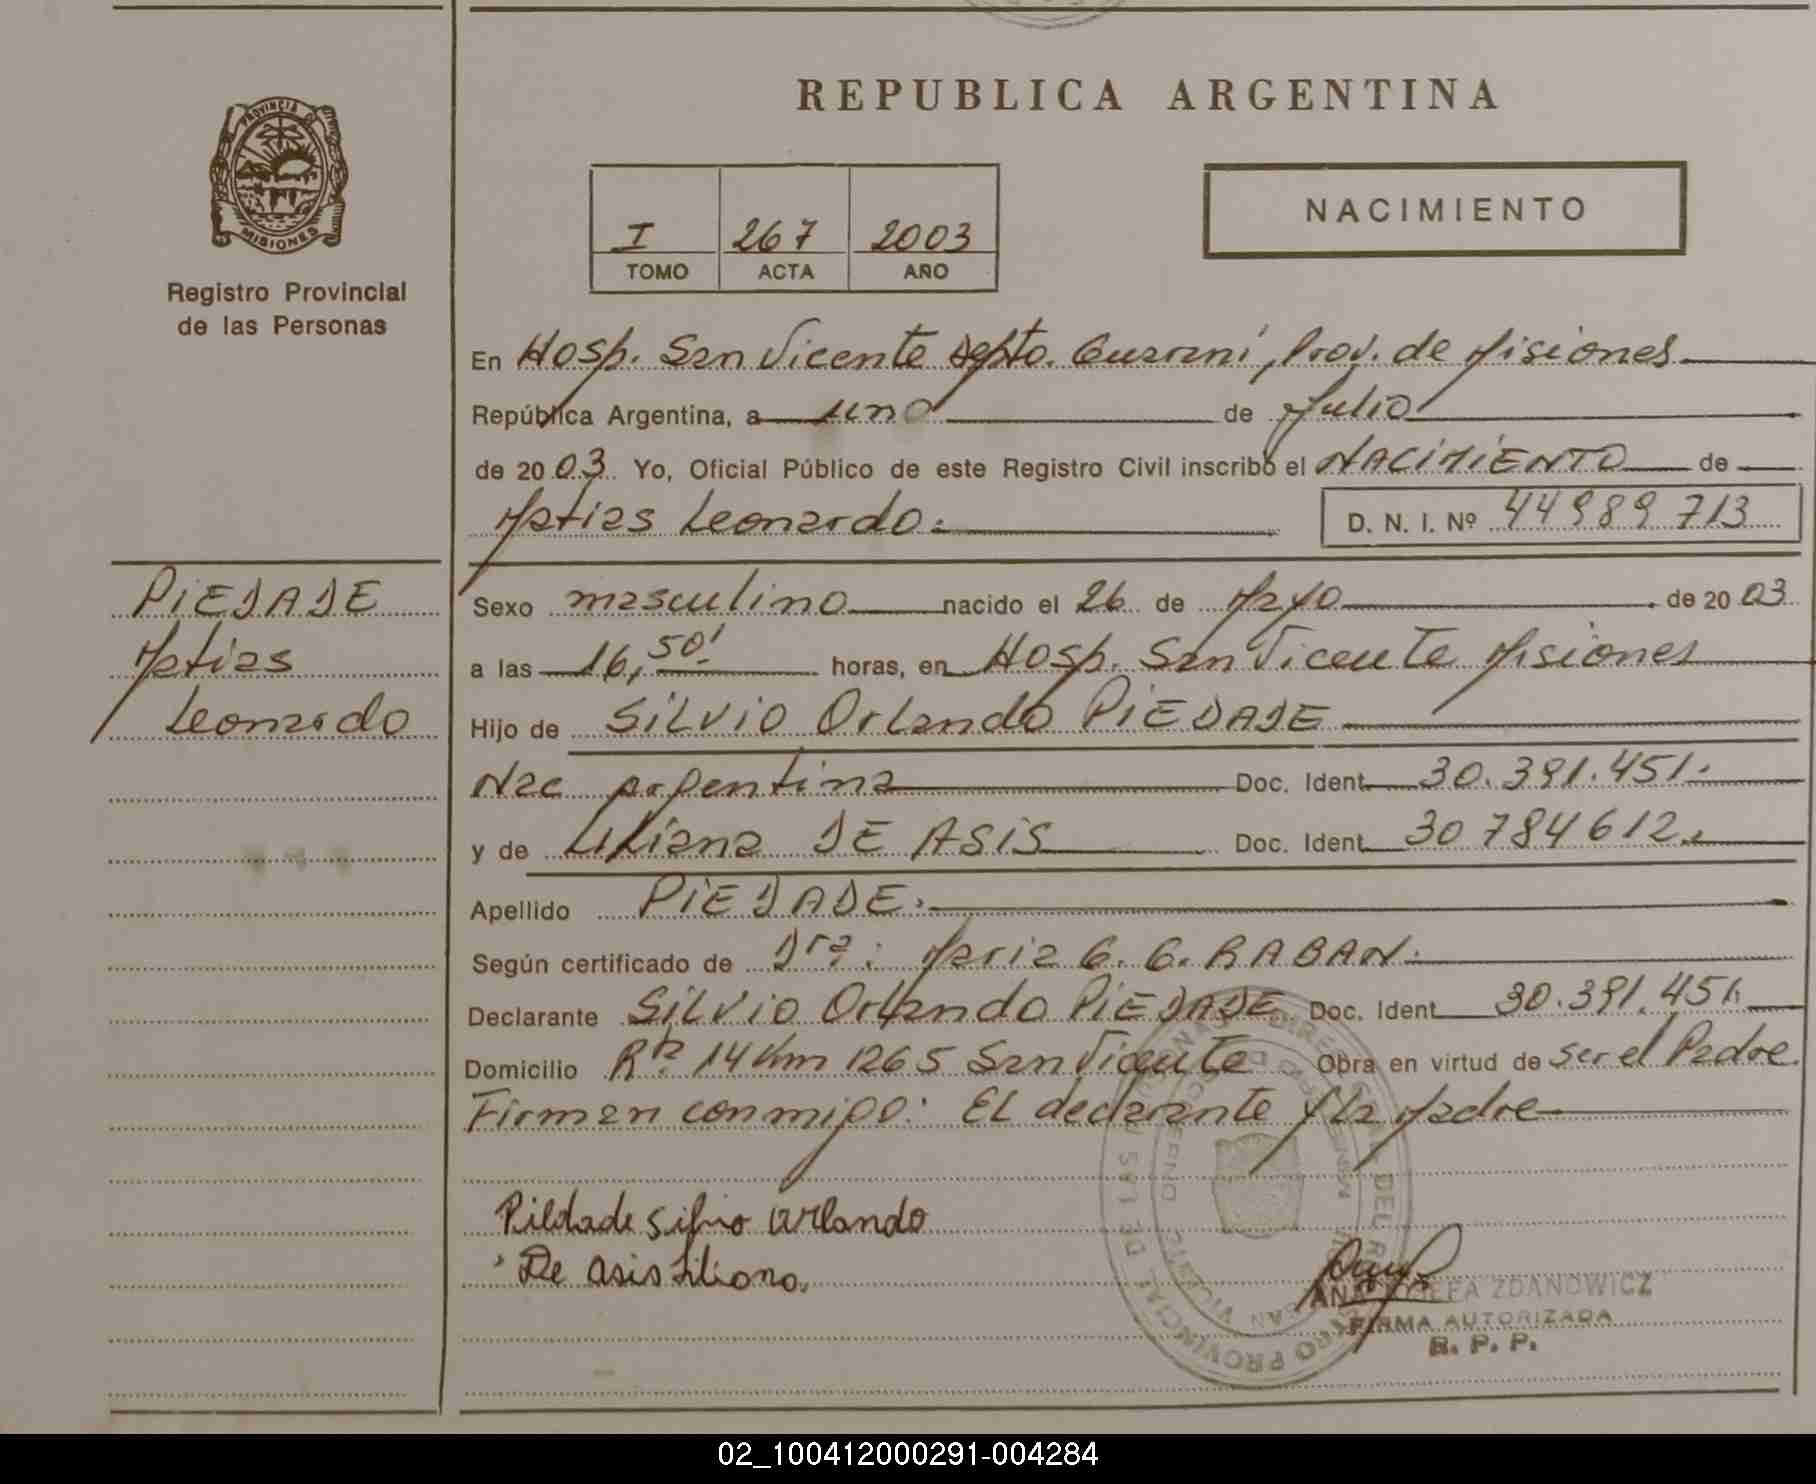 REPUBLICA ARGENTINA
PROVINCIA DE
MISIONES
Registro Provincial
de las Personas
I 267 2003
TOMO ACTA AÑO
NACIMIENTO
En Hosp. San Vicente Depto. Guaraní, Prov. de Misiones
República Argentina, a uno de Julio
de 2003. Yo, Oficial Público de este Registro Civil inscribo el NACIMIENTO de
Matias Leonardo. D. N. I. Nº 44989713
PIEDADE
Matias
Leonardo
Sexo masculino nacido el 26 de Mayo de 2003
a las 16,50' horas, en Hosp. San Vicente Misiones
Hijo de Silvio Orlando PIEDADE
Nac argentina Doc. Ident. 30.391.451.
y de Liliana DE ASIS Doc. Ident. 30784612.
Apellido PIEDADE.
Según certificado de Dra: Maria G. G. RABAN.
Declarante Silvio Orlando PIEDADE Doc. Ident. 30.391.451.
Domicilio Rta. 14 Km 1265 San Vicente Obra en virtud de ser el Padre.
Firman conmigo: El declarante y la Madre
Piedade Silvio Orlando
De Asis Liliana.
ANA JOSEFA ZDANOWICZ
FIRMA AUTORIZADA
R. P. P.
02_100412000291-004284